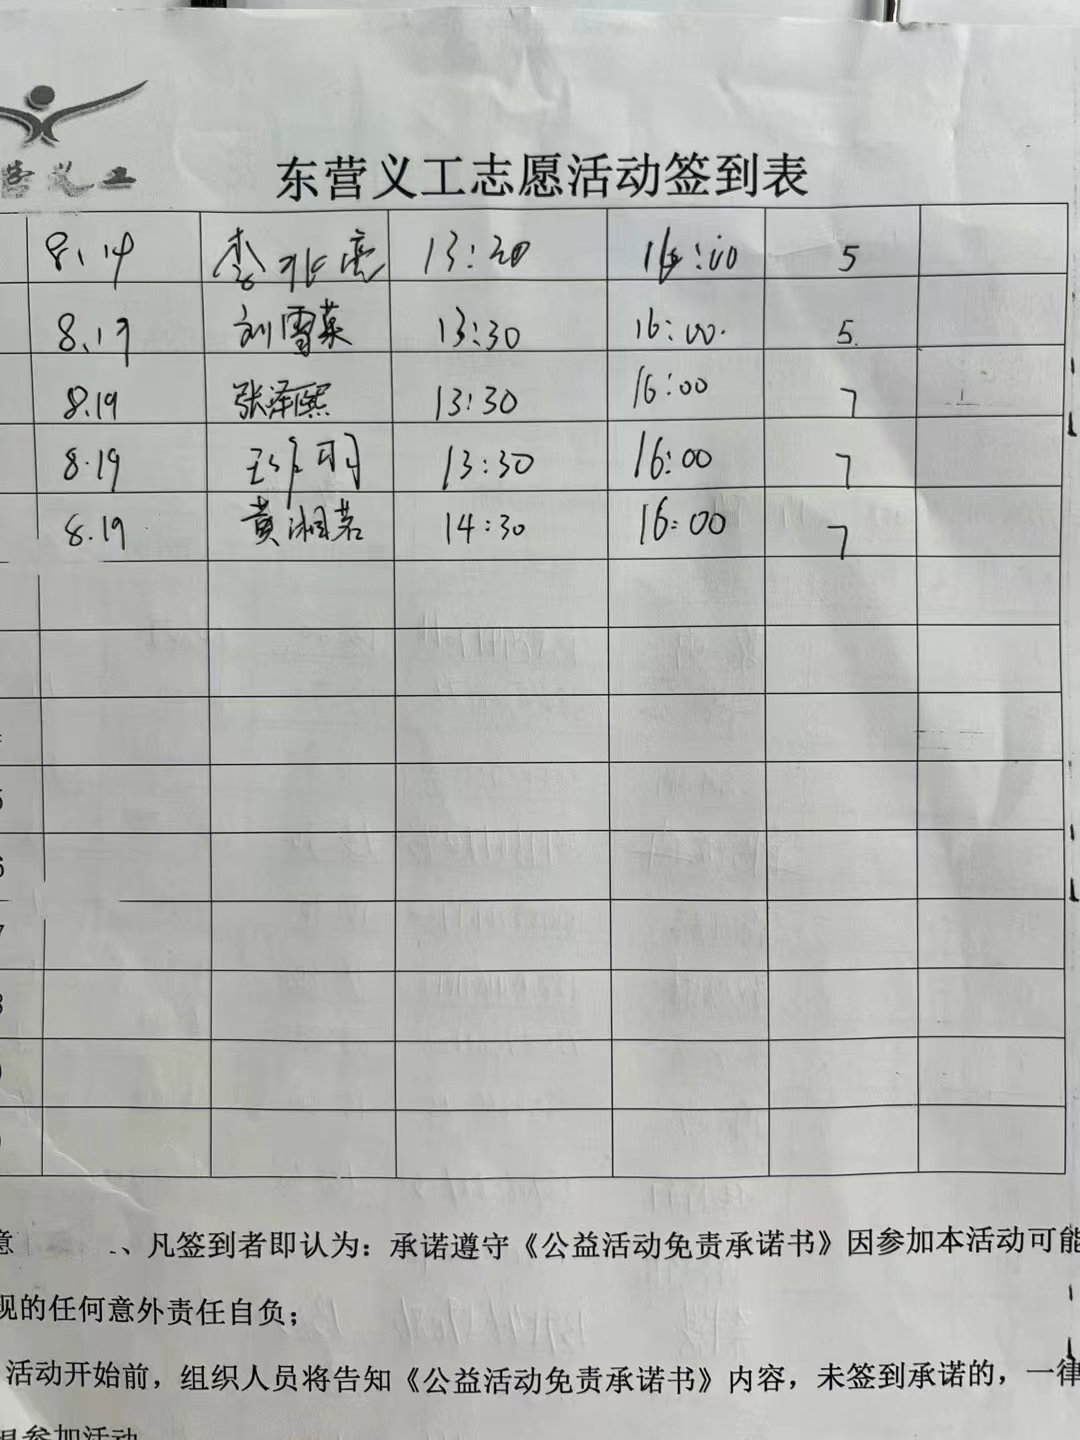 营义工
东营义工志愿活动签到表
8.19 李 亮 13:20 16:00 5
8.19 刘雪菜 13:30 16:00. 5.
8.19 张泽熙 13:30 16:00 7
8.19 13:30 16:00 7
8.19 黄湘茗 14:30 16:00 7
5
6
7
意 、凡签到者即认为：承诺遵守《公益活动免责承诺书》因参加本活动可能
现的任何意外责任自负；
活动开始前，组织人员将告知《公益活动免责承诺书》内容，未签到承诺的，一律
参加活动